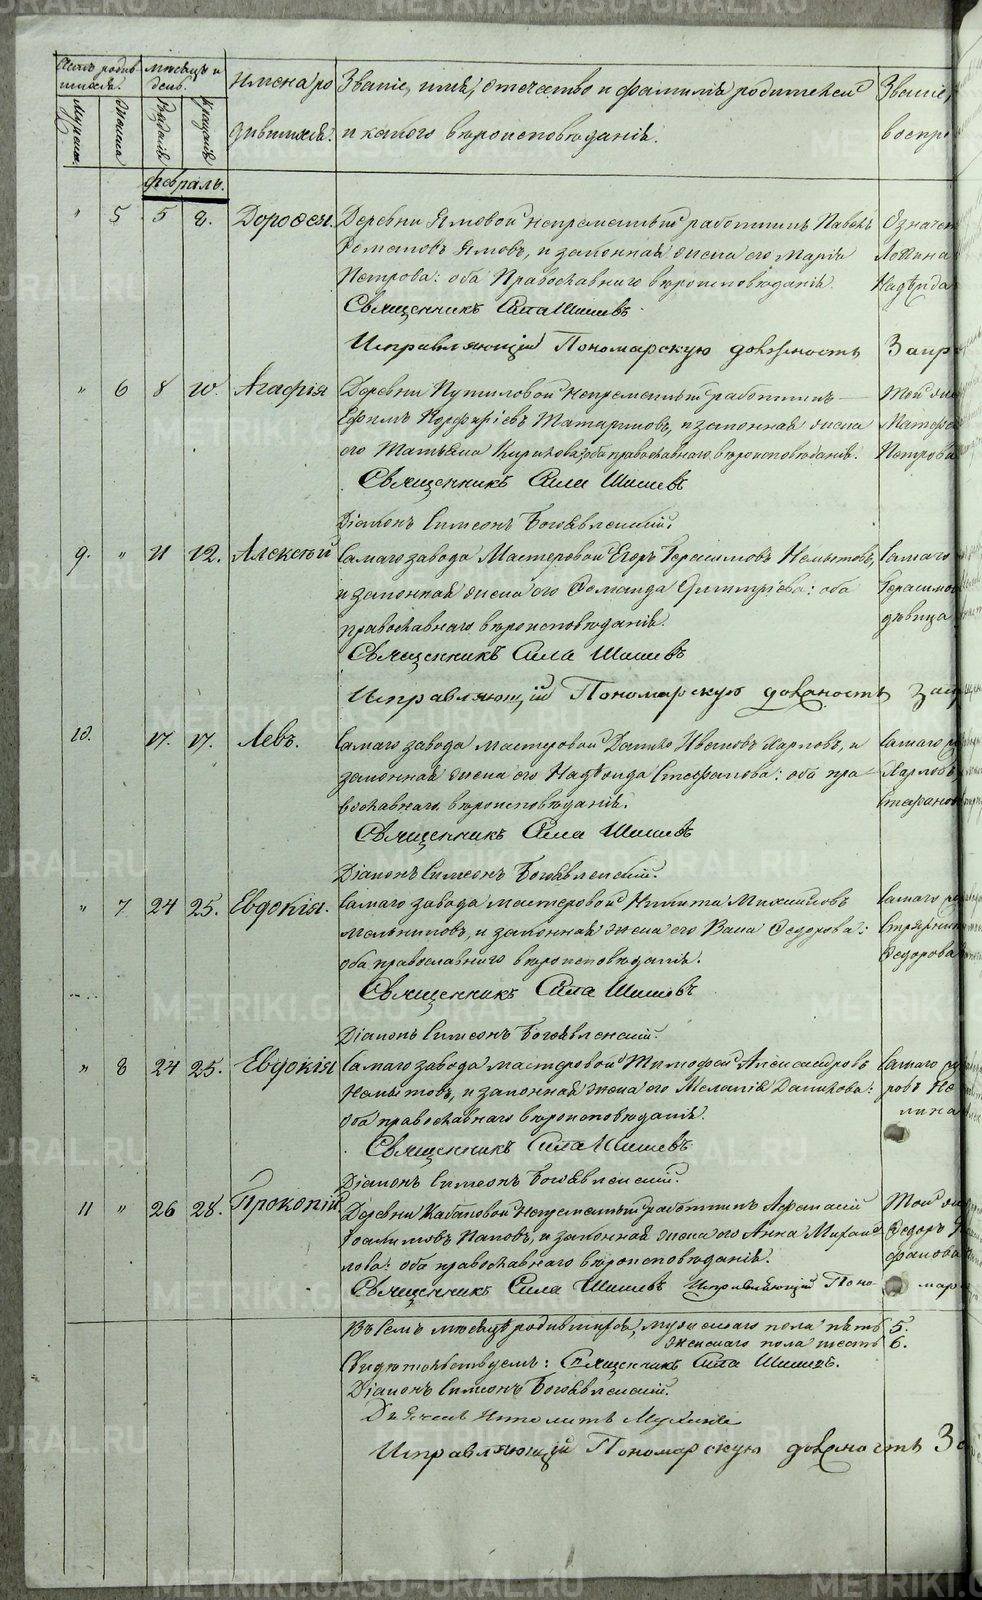 Счетъ родив- мѣсяцъ и Имена ро Званіе, имя, отечество и фамилія родителей Званіе,
шихся. день.
Мужска. Женска рожденія крещенія дившихся. и какого вѣроисповѣданія. воспр
Февраль.
" 5 5 8. Дороѳея. Деревни Ямовой непремѣнный работникъ Павелъ Означен
Ямовъ, и законная жена его Марія
Петрова: оба Православнаго вѣроисповѣданія. Надежда
Священникъ Сила Шишевъ
Исправляющій Пономарскую должность Запр
" 6 8 10. Агафія Деревни Путиловой непремѣнный работникъ той
Ефимъ Порфиріевъ Татариновъ, и законная жена
его Татьяна Кирилова, оба православнаго вѣроисповѣданія. Петрова
Священникъ Сила Шишевъ
Діаконъ Симеонъ Богоявленскій.
9. " 11 12. Алексѣй Самаго завода Мастеровой Егоръ Герасимовъ Немытовъ, Самаго
и законная жена его Домнида Димитріева: оба Герасимов
православнаго вѣроисповѣданія. дѣвица
Священникъ Сила Шишевъ
Исправляющій Пономарскую должность
10. 17. 17. Левъ. Самаго завода мастеровой Данило Ивановъ Карповъ, и Самаго
законная жена его Надежда Стефанова: оба пра- Карповъ,
вославнаго вѣроисповѣданія. Стефанов
Священникъ Сила Шишевъ
Діаконъ Симеонъ Богоявленскій.
" 7 24 25. Евдокія. Самаго завода мастеровой Никита Михайловъ Самаго
Мельниковъ, и законная жена его Васса Ѳедорова:
оба православнаго вѣроисповѣданія. Ѳедорова
Священникъ Сила Шишевъ
Діаконъ Симеонъ Богоявленскій.
" 8 24 25. Евдокія Самаго завода мастеровой Тимофей Александровъ Самаго
Немытовъ, и законная жена его Меланія Данилова: ровъ Не
оба православнаго вѣроисповѣданія.
Священникъ Сила Шишевъ
Діаконъ Симеонъ Богоявленскій.
11 " 26 28. Прокопій. Деревни Кабановой непремѣнный работникъ Аѳанасій Той
Поповъ, и законная жена его Анна Михай- Ѳедоръ
лова: оба православнаго вѣроисповѣданія. фанова
Священникъ Сила Шишевъ Исправляющій Поно- мар
Въ семъ мѣсяцѣ родившихся, мужескаго пола пять 5.
женскаго пола шесть 6.
Свидѣтельствуемъ: Священникъ Сила Шишевъ.
Діаконъ Симеонъ Богоявленскій.
Дьячекъ Ипполитъ Мухинъ
Исправляющій Пономарскую должность За
METRIKI.GASO-URAL.RU